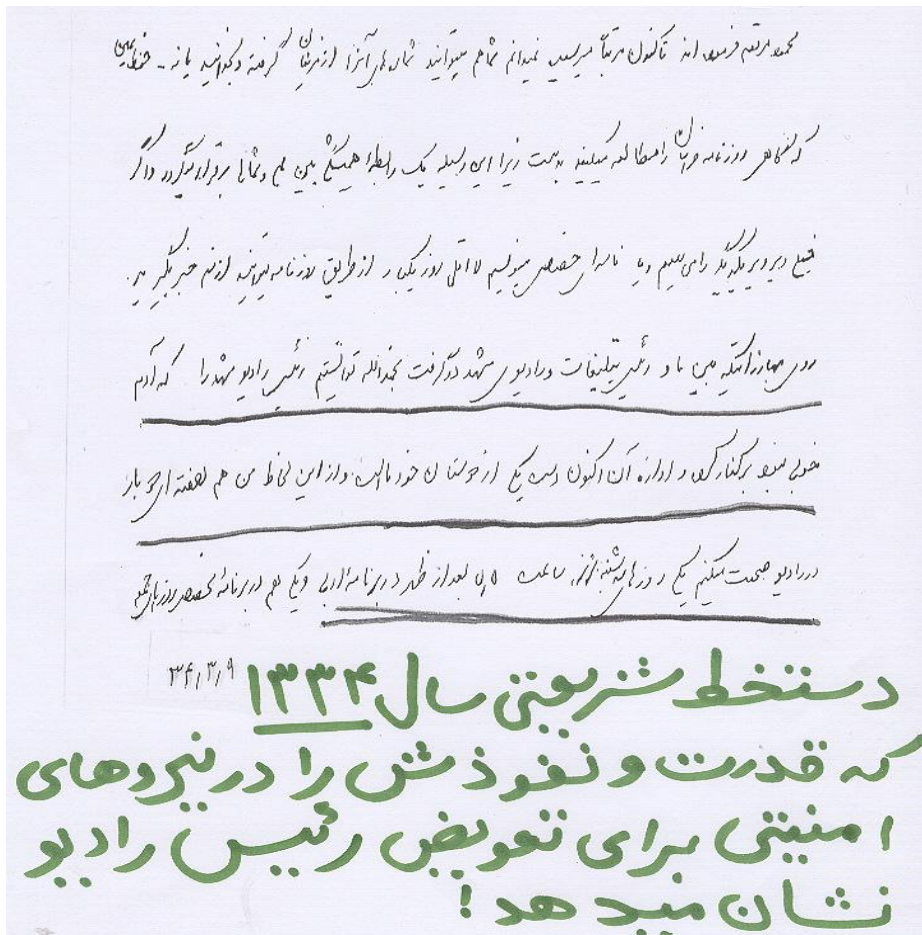 تاکنون مرتباً میرسید نمیدانم شما هم میتوانید شماره‌های آنرا از رفقایتان گرفته و بخوانید یا نه -
روزنامه خراسان را مطالعه میکنید بد نیست زیرا این وسیله یک رابطهٔ همیشگی بین من و شما برقرار میکرد و اگر
و دیر بدیر یکدیگر را می بینیم و یا نامه‌ای خصوصی مینویسیم لااقل روز یکبار از طریق روزنامه میتوانید از من خبر بگیرید.
روی مبارزاتیکه بین ما و رئیس تبلیغات و رادیوی مشهد در گرفت بحمدالله توانستیم رئیس رادیو مشهد را که آدم
خوبی نبود برکنار کرد و اداره آن اکنون دست یکی از دوستان خود ماست و از این لحاظ من هم هفته ای دو بار
در رادیو صحبت میکنم یکی روزهای ساعت بعد از ظهر در برنامه ادبی و یکی هم در برنامهٔ مخصوص
۳۴٫۳٫۹
دستخط شریعتی سال ۱۳۳۴
که قدرت و نفوذش را در نیروهای
امنیتی برای تعویض رئیس رادیو
نشان میدهد!